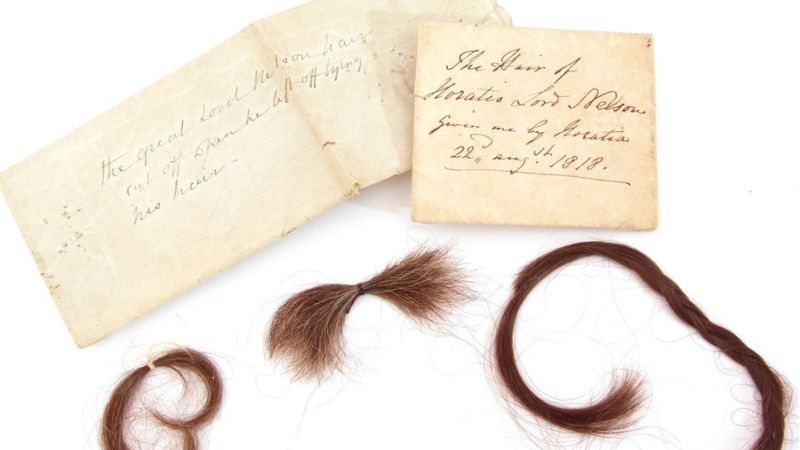 the great Lord Nelson hair
cut off when he left off tying
his hair -
The Hair of
Horatio Lord Nelson
given me by Horatia
22d, augst. 1818.